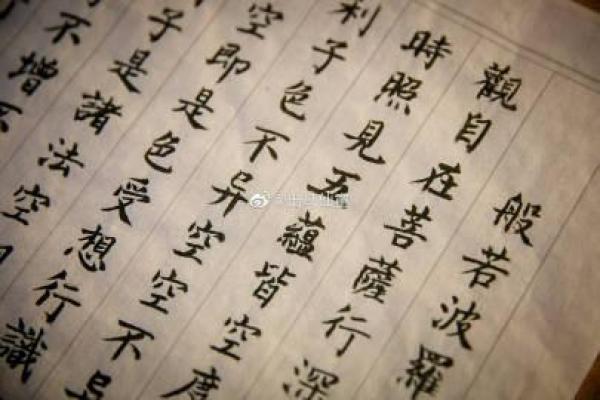 般若波羅
觀自在菩薩行深
時照見五蘊皆空度
利子色不异空空不异
空即是色受想行識
子是諸法空
不增不